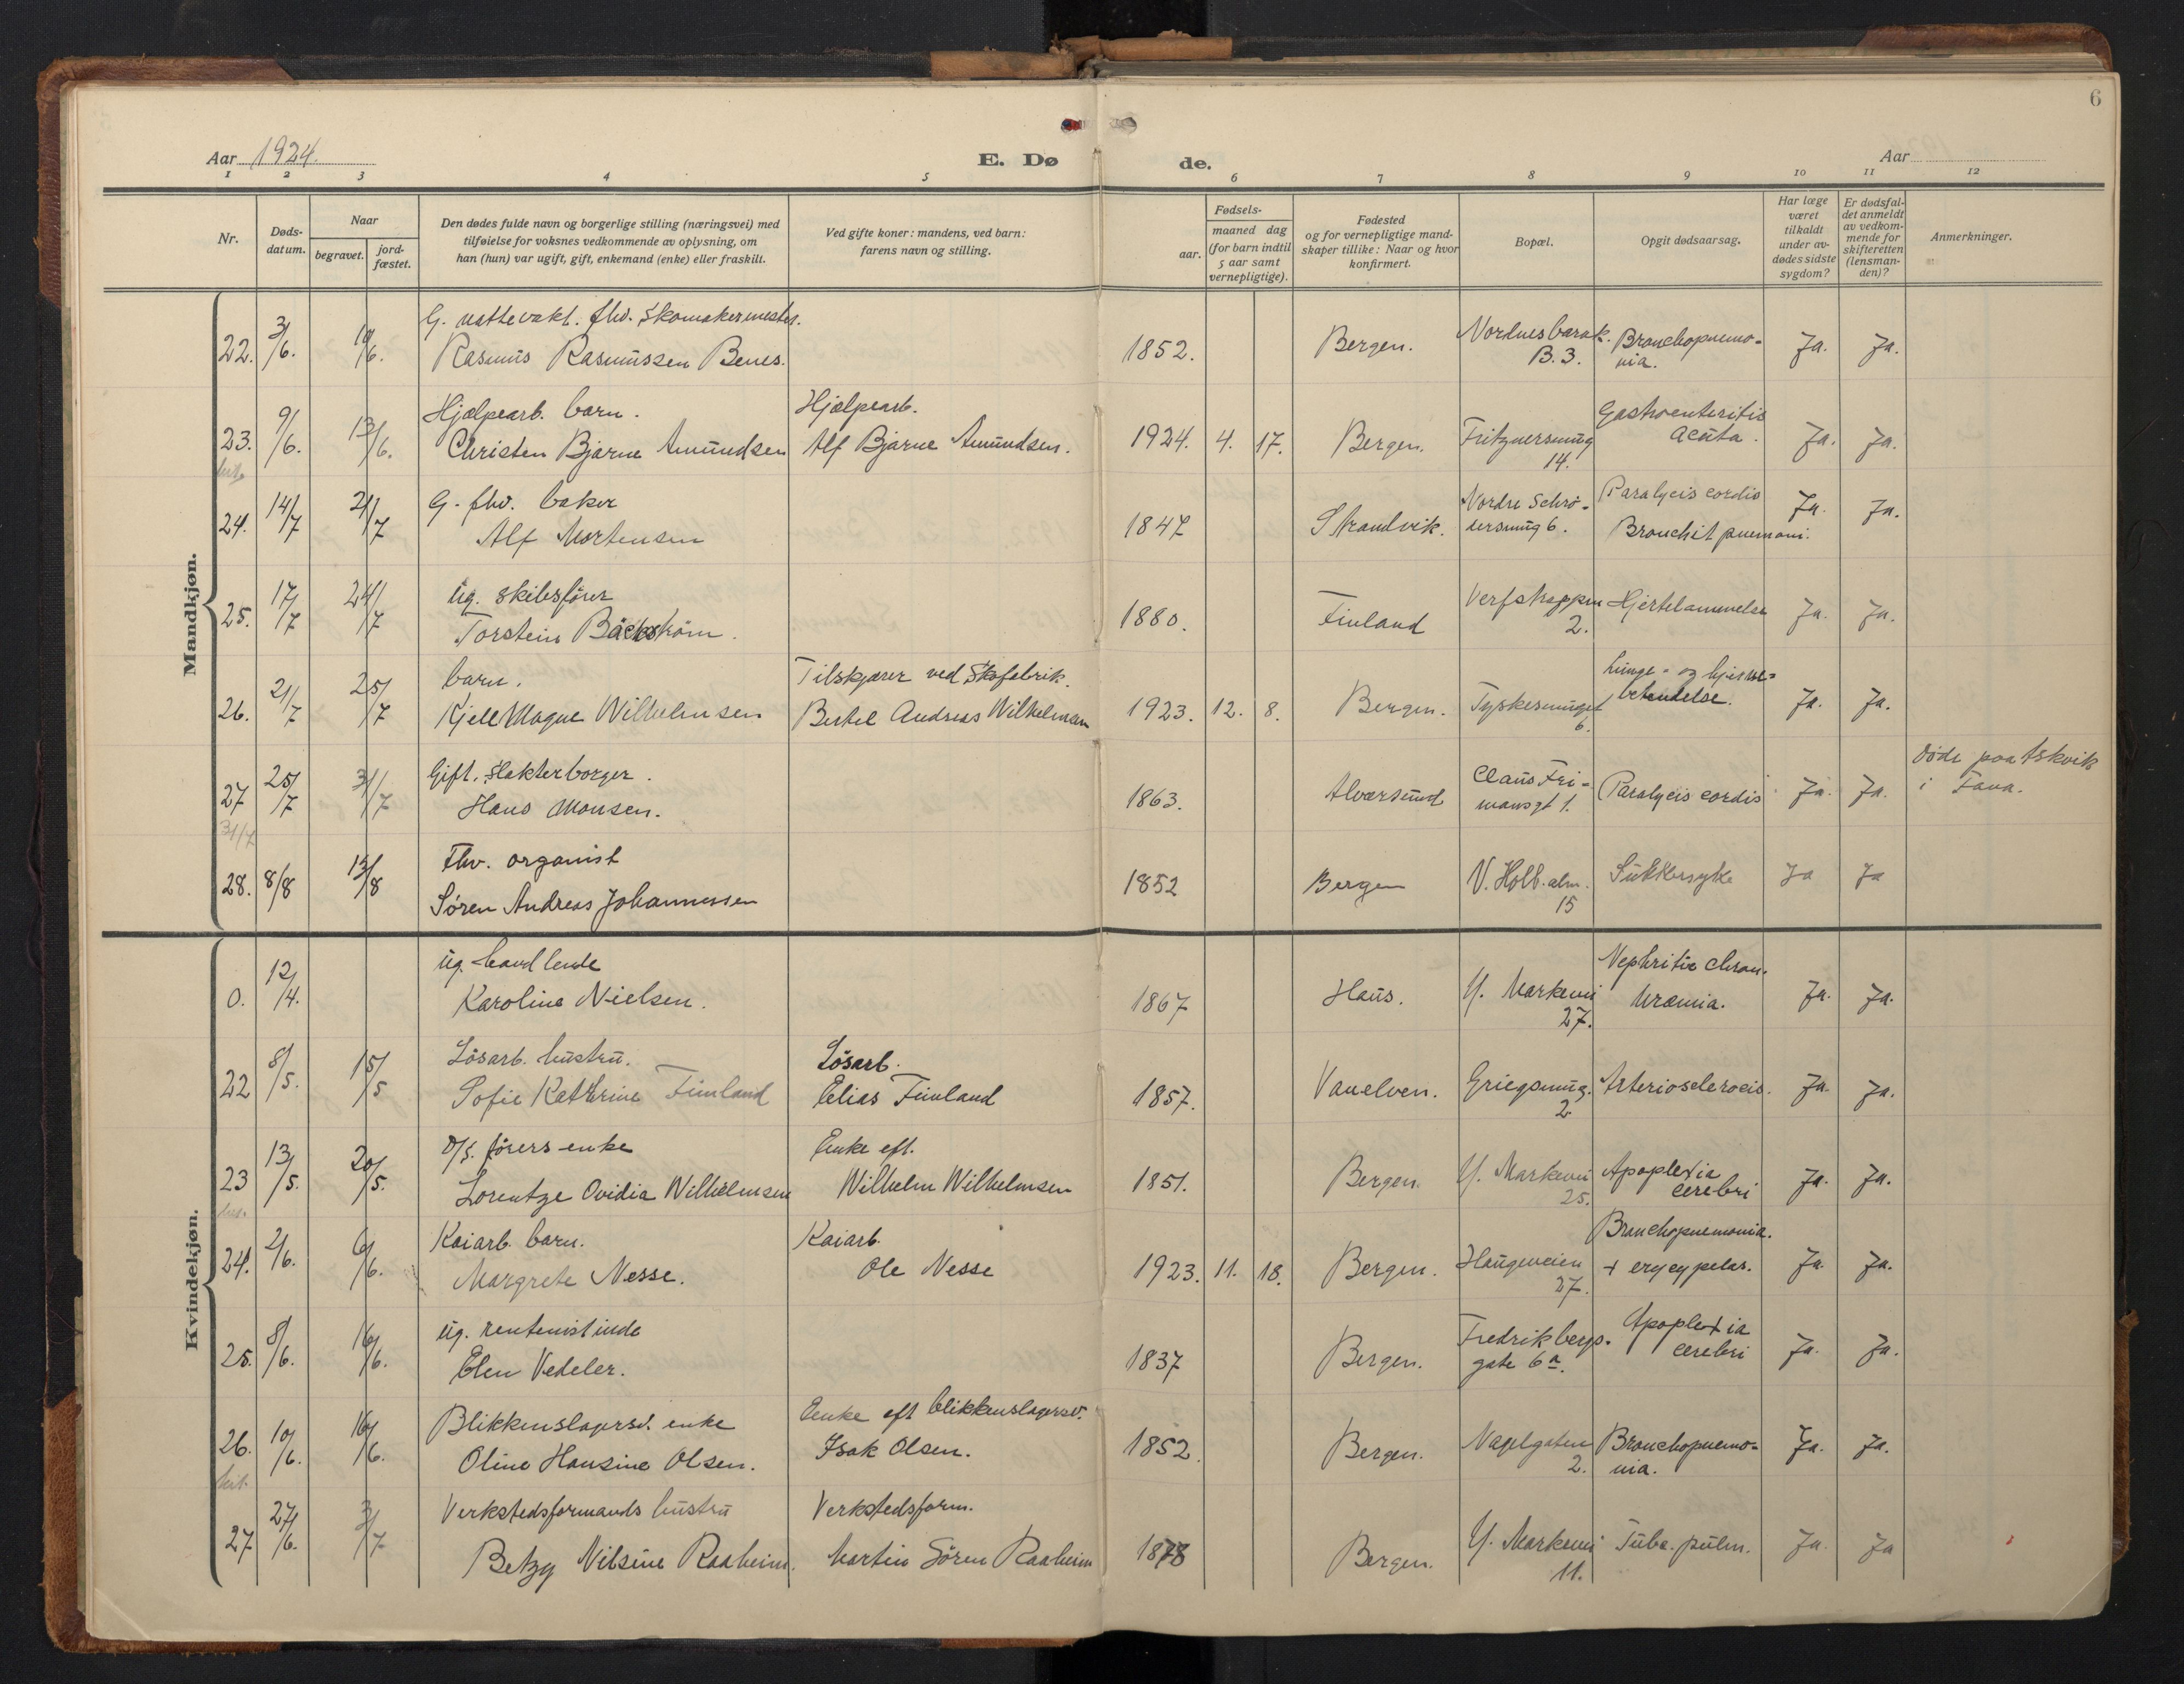 6
Aar 1924. E. Dø de. Aar
1 2 3 4 5 6 7 8 9 10 11 12
Nr.
Døds-
datum.
Naar
begravet.
jord-
fæstet.
Den dødes fulde navn og borgerlige stilling (næringsvei) med
tilføielse for voksnes vedkommende av oplysning, om
han (hun) var ugift, gift, enkemand (enke) eller fraskilt.
Ved gifte koner: mandens, ved barn:
farens navn og stilling.
Fødsels-
aar.
maaned dag
(for barn indtil
5 aar samt
vernepligtige).
Fødested
og for vernepligtige mand-
skaper tillike: Naar og hvor
konfirmert.
Bopæl.
Opgit dødsaarsag.
Har læge
været
tilkaldt
under av-
dødes sidste
sygdom?
Er dødsfal-
det anmeldt
av vedkom-
mende for
skifteretten
(lensman-
den)?
Anmerkninger.
Mandkjøn.
22. 3/6. 10/6. G. nattevakt. fhv. skomakermester.
Rasmus Rasmussen Benes. 1852. Bergen. Nordnesbarak. B. 3. Bronchopnemo-
nia. Ja. Ja.
23. 9/6. 13/6. Hjælpearb. barn. Hjælpearb.
Christen Bjarne Amundsen Alf Bjarne Amundsen. 1924. 4. 17. Bergen. Fritznersmug 14. Gastroenteritis
acuta. Ja. Ja.
24. 14/7 21/7 G. fhv. baker
Alf Mortensen 1847 Strandvik. Nordre Schrø-
dersmug 6. Paralycis cordis
Bronchit pnemoni. Ja. Ja.
25. 17/7 24/7 Ug. skibsfører
Torstein Bäckström. 1880. Finland Verfstrappen 2. Hjertelammelse Ja. Ja.
26. 21/7 25/7 barn. Tilskjærer ved Skofabrik.
Kjell Magne Wilhelmsen Bertel Andreas Wilhelmsen 1923. 12. 8. Bergen. Tyskesmuget 6. Lunge- og hjerne-
betendelse. Ja. Ja.
27 25/7 31/7 Gift. Slakterborger.
Hans Monsen. 1863. Alversund Claus Fri-
mansgt 1. Paralycis cordis Ja. Ja. Døde paa
i Fana.
31/7
28. 8/8 13/8 Fhv. organist
Søren Andreas Johannessen 1852 Bergen V. Holb. alm. 15 Sukkersyke Ja Ja
Kvindekjøn.
0. 12/4. ug. handlende
Karoline Nielsen. 1867 Haus. Y. Markevei 27. Nephritis chron.
Uræmia. Ja. Ja.
22 8/5. 15/5 Løsarb. hustru. Løsarb.
Sofie Kathrine Finland Elias Finland 1857. Vanelven. Griegsmug. 2 Arteriosclerocis. Ja. Ja.
23 13/5. 20/5. D/S. førers enke Enke eft.
Lorentze Ovidia Wilhelmsen Wilhelm Wilhelmsen 1851. Bergen. Y. Markevei 25. Apoplexia
cerebri Ja. Ja.
24. 2/6. 6/6. Kaiarb. barn. Kaiarb.
Margrete Nesse. Ole Nesse 1923. 11. 18. Bergen. Haugeveien 27. Bronchopnemonia.
+ erycypelas. Ja. Ja.
25. 8/6. 16/6. ug. rentenistinde
Elen Vedeler. 1837 Bergen. Fredrikbergs-
gate 6a. Apoplexia
cerebri Ja. Ja.
26. 10/6. 16/6. Blikkenslagersv. enke Enke eft blikkenslagersv.
Oline Hansine Olsen. Isak Olsen. 1852. Bergen. Nagelgaten 2. Bronchopnemo-
nia. Ja. Ja.
27 27/6. 3/7 Verkstedsformands hustru Verkstedsform.
Betzy Nilsine Raaheim. Martin Søren Raaheim 1878 Bergen. Y. Markevei 11. Tube. pulm. Ja. Ja